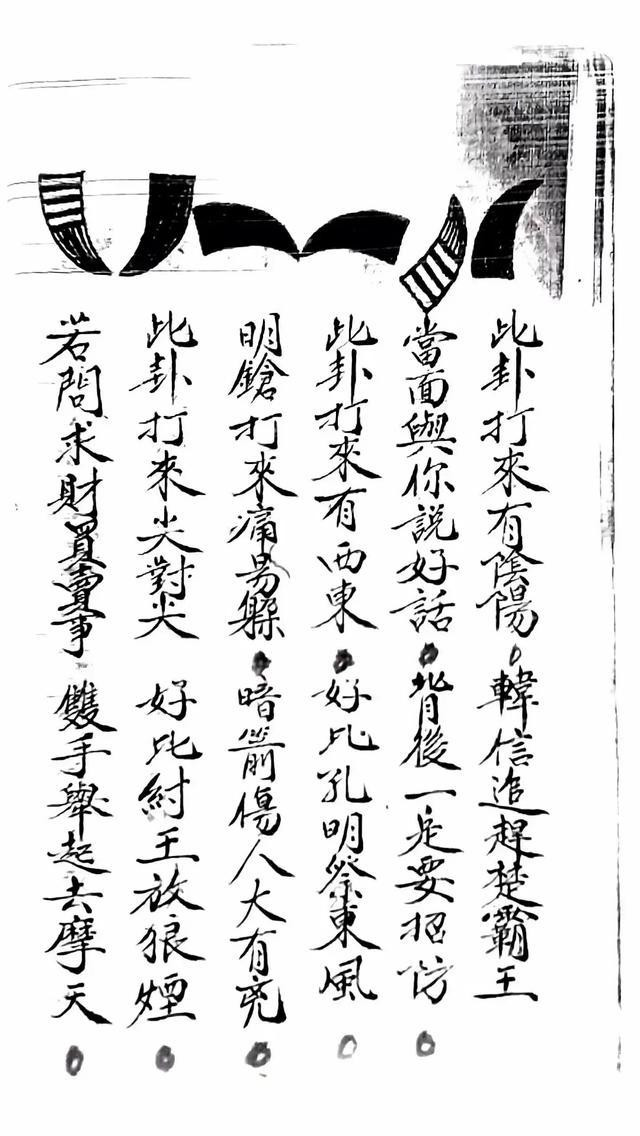 此卦打來有陰陽 韓信追趕楚霸王
當面與你說好話 背後一定要招防
此卦打來有西東 好比孔明祭東風
明鎗打來痛易躲 暗箭傷人大有兇
此卦打來尖對尖 好比紂王放狼煙
若問求財買賣事 雙手舉起去摩天